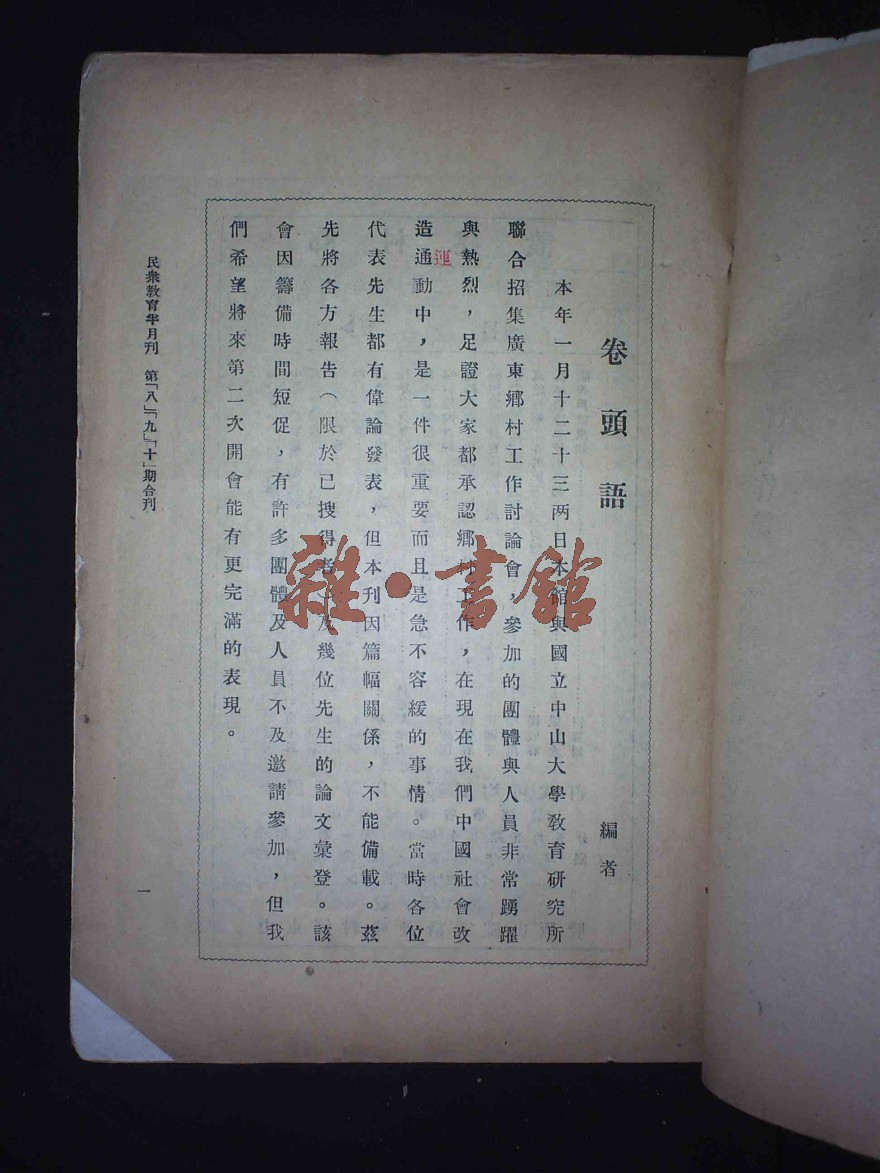 卷頭語
編者
本年一月十二十三两日本館與國立中山大學敎育硏究所
聯合招集廣東鄉村工作討論會，參加的團體與人員非常踴躍
與熱烈，足證大家都承認鄉村工作，在現在我們中國社會改
運
造通動中，是一件很重要而且是急不容緩的事情。當時各位
代表先生都有偉論發表，但本刊因篇幅關係，不能備載。茲
先將各方報吿（限於已搜得者）及幾位先生的論文彙登。該
會因籌備時間短促，有許多團體及人員不及邀請參加，但我
們希望將來第二次開會能有更完滿的表現。
民衆敎育半月刊 第「八」「九」「十」期合刊
一
雜·書館